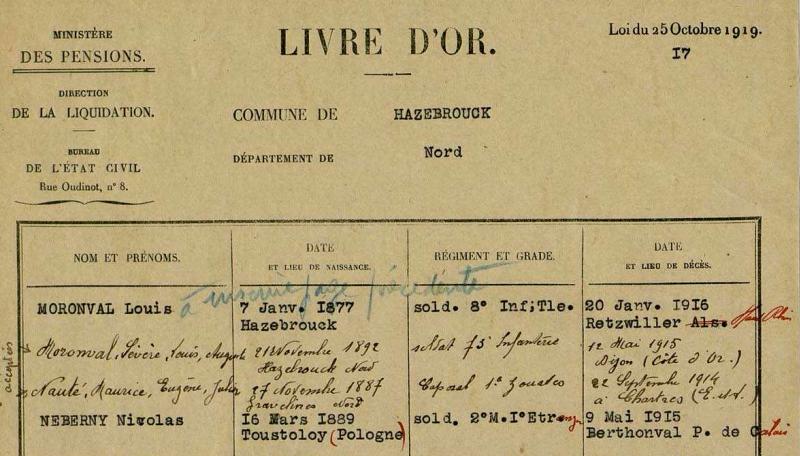 MINISTÈRE
DES PENSIONS.
DIRECTION
DE LA LIQUIDATION.
BUREAU
DE L'ÉTAT CIVIL
Rue Oudinot, nº 8.
LIVRE D'OR.
COMMUNE DE HAZEBROUCK
DÉPARTEMENT DE Nord
Loi du 25 Octobre 1919.
I7
NOM ET PRÉNOMS.
DATE
ET LIEU DE NAISSANCE.
RÉGIMENT ET GRADE.
DATE
ET LIEU DE DÉCÈS.
à inscrire page précédente
MORONVAL Louis 7 Janv. I877 sold. 8º Inf;Tle. 20 Janv. I9I6
Hazebrouck Retzwiller Als. Haut Rhin
Moronval, Sévère, Louis, Auguste 21 Novembre 1892 soldat 73e Infanterie 12 Mai 1915
Hazebrouck Nord Dijon (Côte d'Or.)
acceptés
Nauté, Maurice, Eugène, Julien 27 Novembre 1887 Caporal 1er Zouaves 22 Septembre 1914
Gravelines Nord à Chartres (E.et.L)
NEBERNY Nicolas I6 Mars I889 sold. 2ºM.IºEtrang 9 Mai I9I5
Toustoloy (Pologne) Berthonval P. de Calais